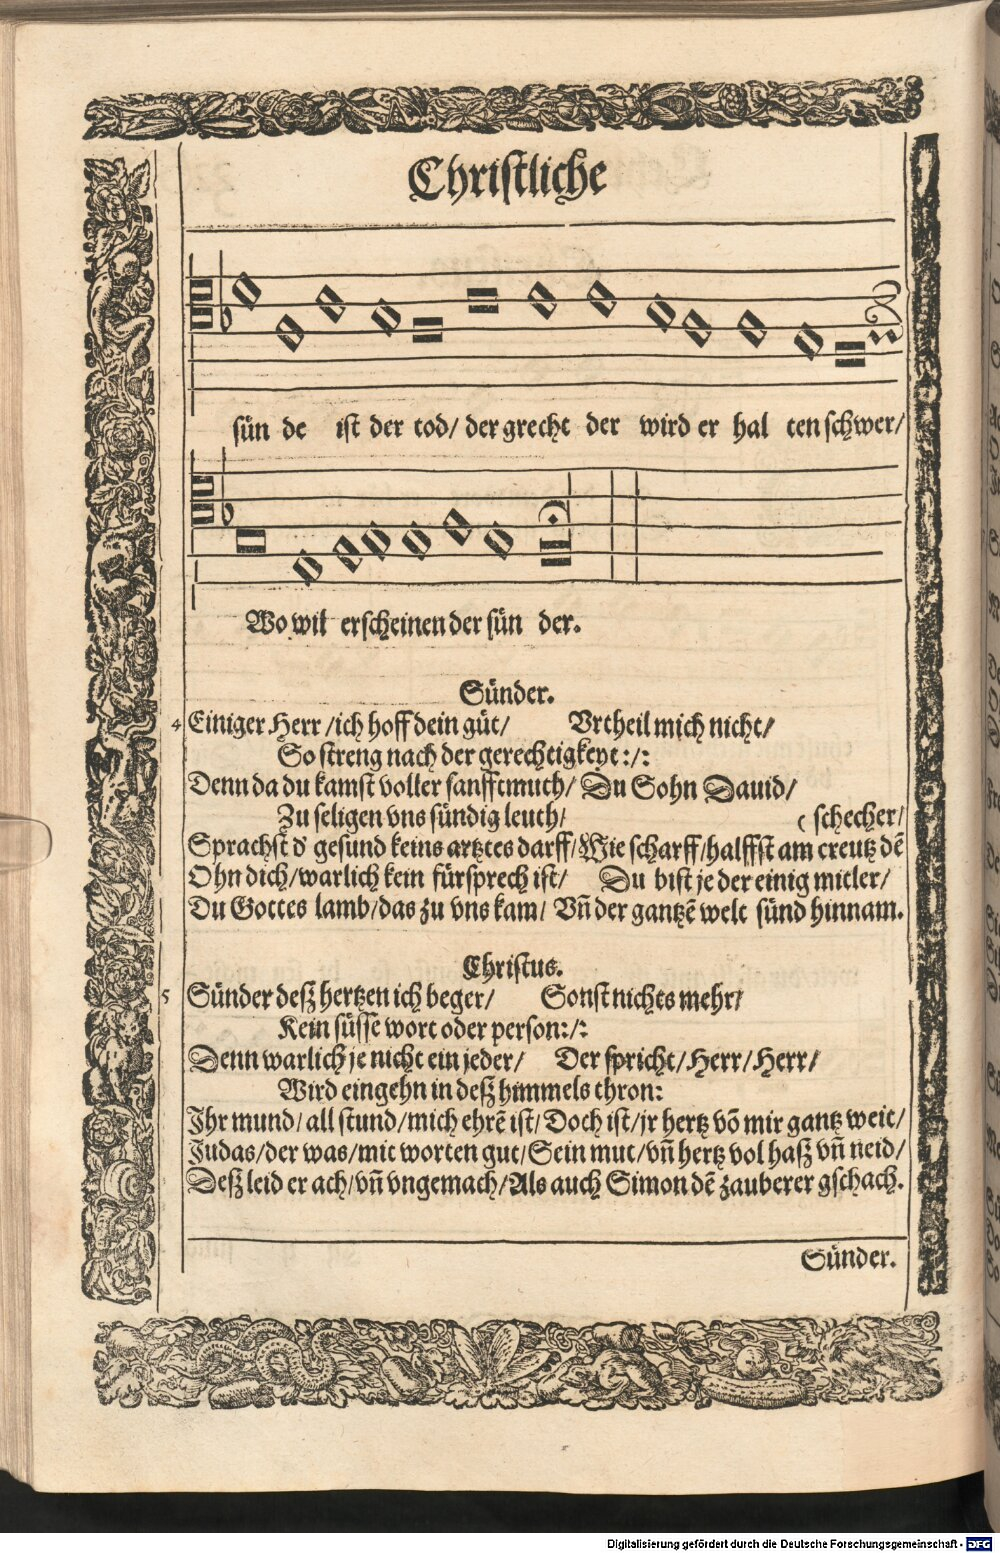 Christliche
sün de ist der tod/ der grecht der wird er hal ten schwer/
Wo wil erscheinen der sün der.
Sünder.
4 Einiger Herr/ich hoff dein güt/ Vrtheil mich nicht/
So streng nach der gerechtigkeyt:/:
Denn da du kamst voller sanfftmuth/ Du Sohn Dauid/
Zu seligen vns sündig leuth/ ( schecher/
Sprachst d' gesund keins artztes darff/Wie scharff/halffst am creutz dē
Ohn dich/warlich kein fürsprech ist/ Du bist je der einig mitler/
Du Gottes lamb/das zu vns kam/ Vñ der gantzē welt sünd hinnam.
Christus.
5 Sünder desz hertzen ich beger/ Sonst nichts mehr/
Kein süsse wort oder person:/:
Denn warlich je nicht ein jeder/ Der spricht/Herr/Herr/
Wird eingehn in desz himmels thron:
Ihr mund/all stund/mich ehrē ist/Doch ist/jr hertz võ mir gantz weit/
Judas/der was/mit worten gut/Sein mut/vñ hertz vol hasz vñ neid/
Desz leid er ach/vñ vngemach/Als auch Simon dē zauberer gschach.
Sünder.
Digitalisierung gefördert durch die Deutsche Forschungsgemeinschaft - DFG